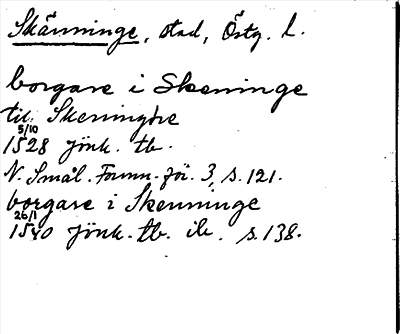 Skänninge, stad, Östg. l.
borgare i Skeninge
til Skeninghe
5/10
1528 Jönk. tb.
N. Smål. Fornm.-för. 3, s. 121.
borgare i Skenninge
26/1
1540 Jönk. tb. ib. s. 138.